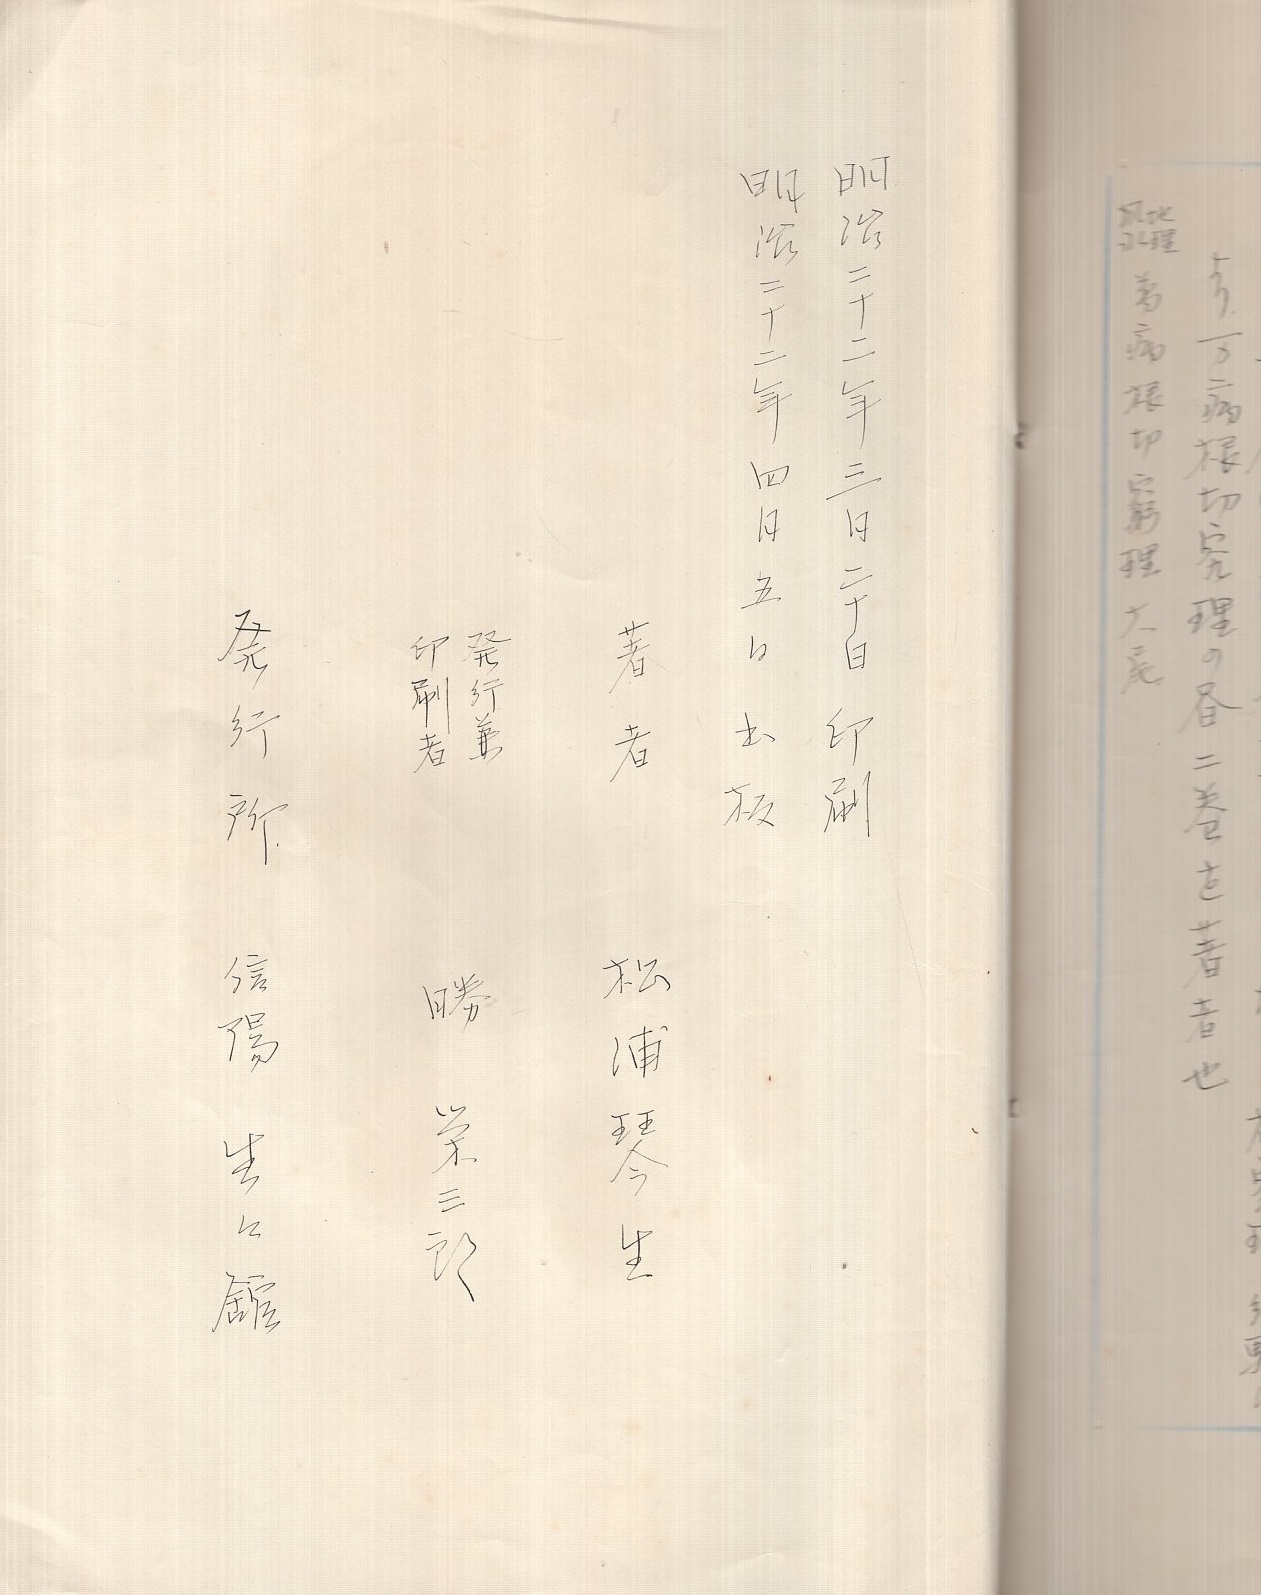 より万病根切究理の書二巻を著者也
地理
風水
萬病根切窮理大尾
明治二十二年三月二十日 印刷
明治二十二年四月五日 出板
著者 松浦琴生
発行兼
印刷者
勝 栄三郎
発行所 信陽 生々館